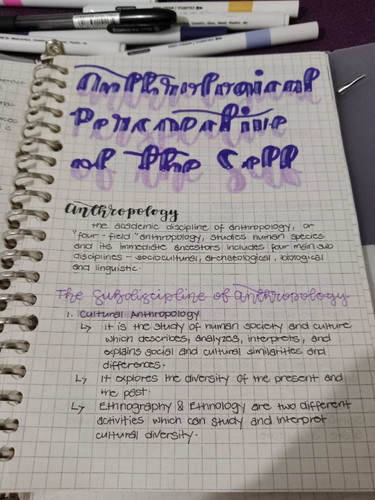 Anthropological
Perspective
of the Self
Anthropology
the academic discipline of anthropology, or
"four-field" anthropology, studies human species
and its immediate ancestors includes four main sub
disciplines - sociocultural, archaeological, biological
and linguistic.
The Subdiscipline of Anthropology
1. Cultural Anthropology
↳ it is the study of human society and culture
which describes, analyzes, interprets, and
explains social and cultural similarities and
differences.
↳ It explores the diversity of the present and
the past.
↳ Ethnography & Ethnology are two different
activities which can study and interpret
cultural diversity.